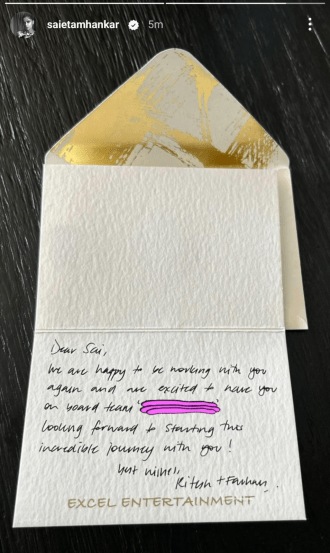 saietamhankar 5m
Dear Sai,
We are happy to be working with you
again and are excited to have you
on board team '
looking forward to starting this
incredible journey with you!
best wishes,
Ritesh + Farhan.
EXCEL ENTERTAINMENT